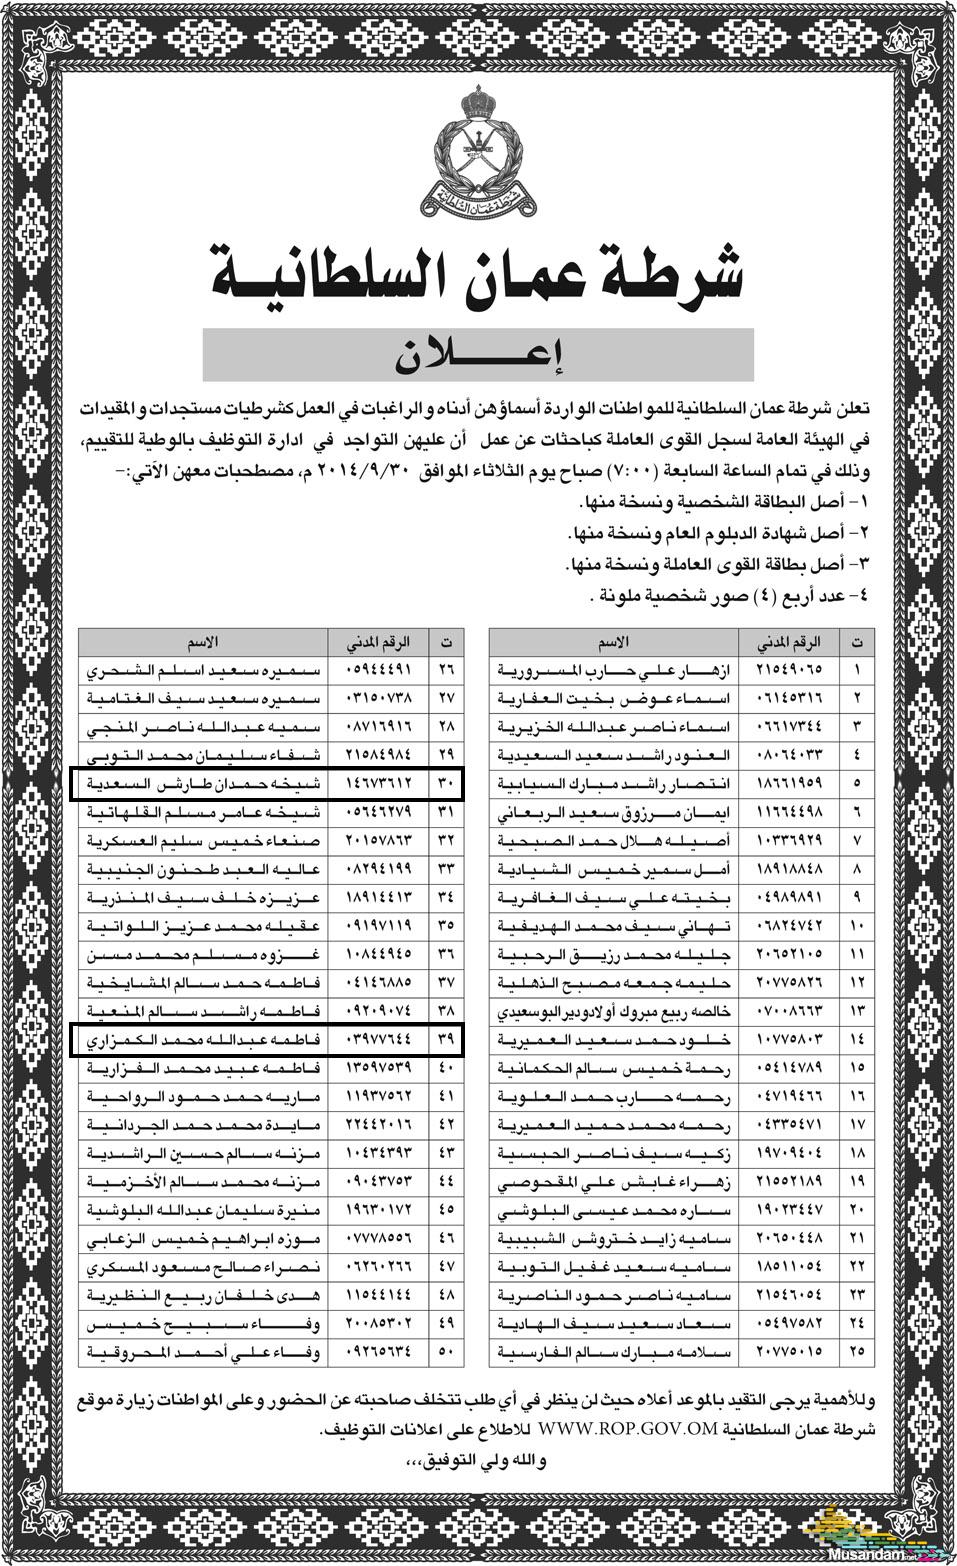 شرطة عمان السلطانية
شرطة عمان السلطانية
إعـــلان
تعلن شرطة عمان السلطانية للمواطنات الواردة أسماؤهن أدناه والراغبات في العمل كشرطيات مستجدات والمقيدات
في الهيئة العامة لسجل القوى العاملة كباحثات عن عمل أن عليهن التواجد في ادارة التوظيف بالوطية للتقييم،
وذلك في تمام الساعة السابعة (٧:٠٠) صباح يوم الثلاثاء الموافق ٢٠١٤/٩/٣٠ م، مصطحبات معهن الآتي:-
١- أصل البطاقة الشخصية ونسخة منها.
٢- أصل شهادة الدبلوم العام ونسخة منها.
٣- أصل بطاقة القوى العاملة ونسخة منها.
٤- عدد أربع (٤) صور شخصية ملونة .
ت الرقم المدني الاسم
١ ٢١٥٤٩٠٦٥ ازهار علي حارب المسرورية
٢ ٠٦١٤٥٣١٦ اسماء عوض بخيت العفارية
٣ ٠٦٦١٧٣٤٤ اسماء ناصر عبدالله الخزيرية
٤ ٠٨٠٦٤٠٣٣ العنود راشد سعيد السعيدية
٥ ١٨٦٦١٩٥٩ انتصار راشد مبارك السيابية
٦ ١١٦٦٤٤٩٨ ايمان مرزوق سعيد الربعاني
٧ ١٠٣٣٦٩٢٩ أصيله هلال حمد الصبحية
٨ ١٨٩١٨٨٤٨ أمل سمير خميس الشيادية
٩ ٠٤٩٨٩٨٩١ بخيته علي سيف الغافرية
١٠ ٠٦٨٢٤٧٤٢ تهاني سيف محمد الهديفية
١١ ٢٠٦٥٢١٠٥ جليله محمد رزيق الرحبية
١٢ ٢٠٧٧٥٨٢٦ حليمه جمعه مصبح الذهلية
١٣ ٠٧٠٠٨٦٦٣ خالصه ربيع مبروك أولادودير البوسعيدي
١٤ ١٠٧٧٥٨٠٣ خلود حمد سعيد العميرية
١٥ ٠٥٤١٤٧٨٩ رحمة خميس سالم الحكمانية
١٦ ٠٤٧١٩٤٦٦ رحمه حارب حمد العلوية
١٧ ٠٤٣٣٥٤٧١ رحمه محمد حميد العميرية
١٨ ١٩٧٠٩٤٠٤ زكيه سيف ناصر الحبسية
١٩ ٢١٥٥٢١٨٩ زهراء غابش علي المقحوصي
٢٠ ١٩٠٢٣٤٤٧ ساره محمد عيسى البلوشي
٢١ ٢٠٦٥٠٤٤٨ ساميه زايد ختروش الشبيبية
٢٢ ١٨٥١١٠٥٤ ساميه سعيد غفيل التوبية
٢٣ ٢١٥٤٦٠٥٤ ساميه ناصر حمود الناصرية
٢٤ ٠٥٤٩٧٥٨٢ سعاد سعيد سيف الهادية
٢٥ ٢٠٧٧٥٠١٥ سلامه مبارك سالم الفارسية
ت الرقم المدني الاسم
٢٦ ٠٥٩٤٤٤٩١ سميره سعيد اسلم الشحري
٢٧ ٠٣١٥٠٧٣٨ سميره سعيد سيف الغتامية
٢٨ ٠٨٧١٦٩١٦ سميه عبدالله ناصر المنجي
٢٩ ٢١٥٨٤٩٨٤ شفاء سليمان محمد التوبي
٣٠ ١٤٦٧٣٦١٢ شيخه حمدان طارش السعدية
٣١ ٠٥٦٤٦٢٧٩ شيخه عامر مسلم القلهاتية
٣٢ ٢٠١٥٧٨٦٣ صنعاء خميس سليم العسكرية
٣٣ ٠٨٢٩٤١٩٩ عاليه العبد طحنون الجنيبية
٣٤ ١٨٩١٤٤١٣ عزيزه خلف سيف المنذرية
٣٥ ٠٩١٩٧١١٩ عقيله محمد عزيز اللواتية
٣٦ ١٠٨٤٤٩٤٥ غزوه مسلم محمد مسن
٣٧ ٠٤١٤٦٨٨٥ فاطمه حمد سالم المشايخية
٣٨ ٠٩٢٠٩٠٧٤ فاطمه راشد سالم المنعية
٣٩ ٠٣٩٧٧٦٤٤ فاطمه عبدالله محمد الكمزاري
٤٠ ١٣٥٩٧٥٣٩ فاطمه عبيد محمد الفزارية
٤١ ١١٩٣٧٥٦٢ ماريه حمد حمود الرواحية
٤٢ ٢٢٤٤٢٠١٦ مايدة محمد حمد الجردانية
٤٣ ١٠٤٣٤٣٩٣ مزنه سالم حسين الراشدية
٤٤ ٠٩٠٤٣٧٥٣ مزنه محمد سالم الأخزمية
٤٥ ١٩٦٣٠١٧٢ منيرة سليمان عبدالله البلوشية
٤٦ ٠٧٧٧٨٥٥٦ موزه ابراهيم خميس الزعابي
٤٧ ٠٦٢٦٠٢٦٦ نصراء صالح مسعود المسكري
٤٨ ١١٥٤٤١٤٤ هدى خلفان ربيع النظيرية
٤٩ ٢٠٠٨٥٣٠٢ وفاء سبيح خميس
٥٠ ٠٩٢٦٥٦٣٤ وفاء علي أحمد المحروقية
وللأهمية يرجى التقيد بالموعد أعلاه حيث لن ينظر في أي طلب تتخلف صاحبته عن الحضور وعلى المواطنات زيارة موقع
شرطة عمان السلطانية WWW.ROP.GOV.OM للاطلاع على اعلانات التوظيف.
والله ولي التوفيق،،،
Musandam